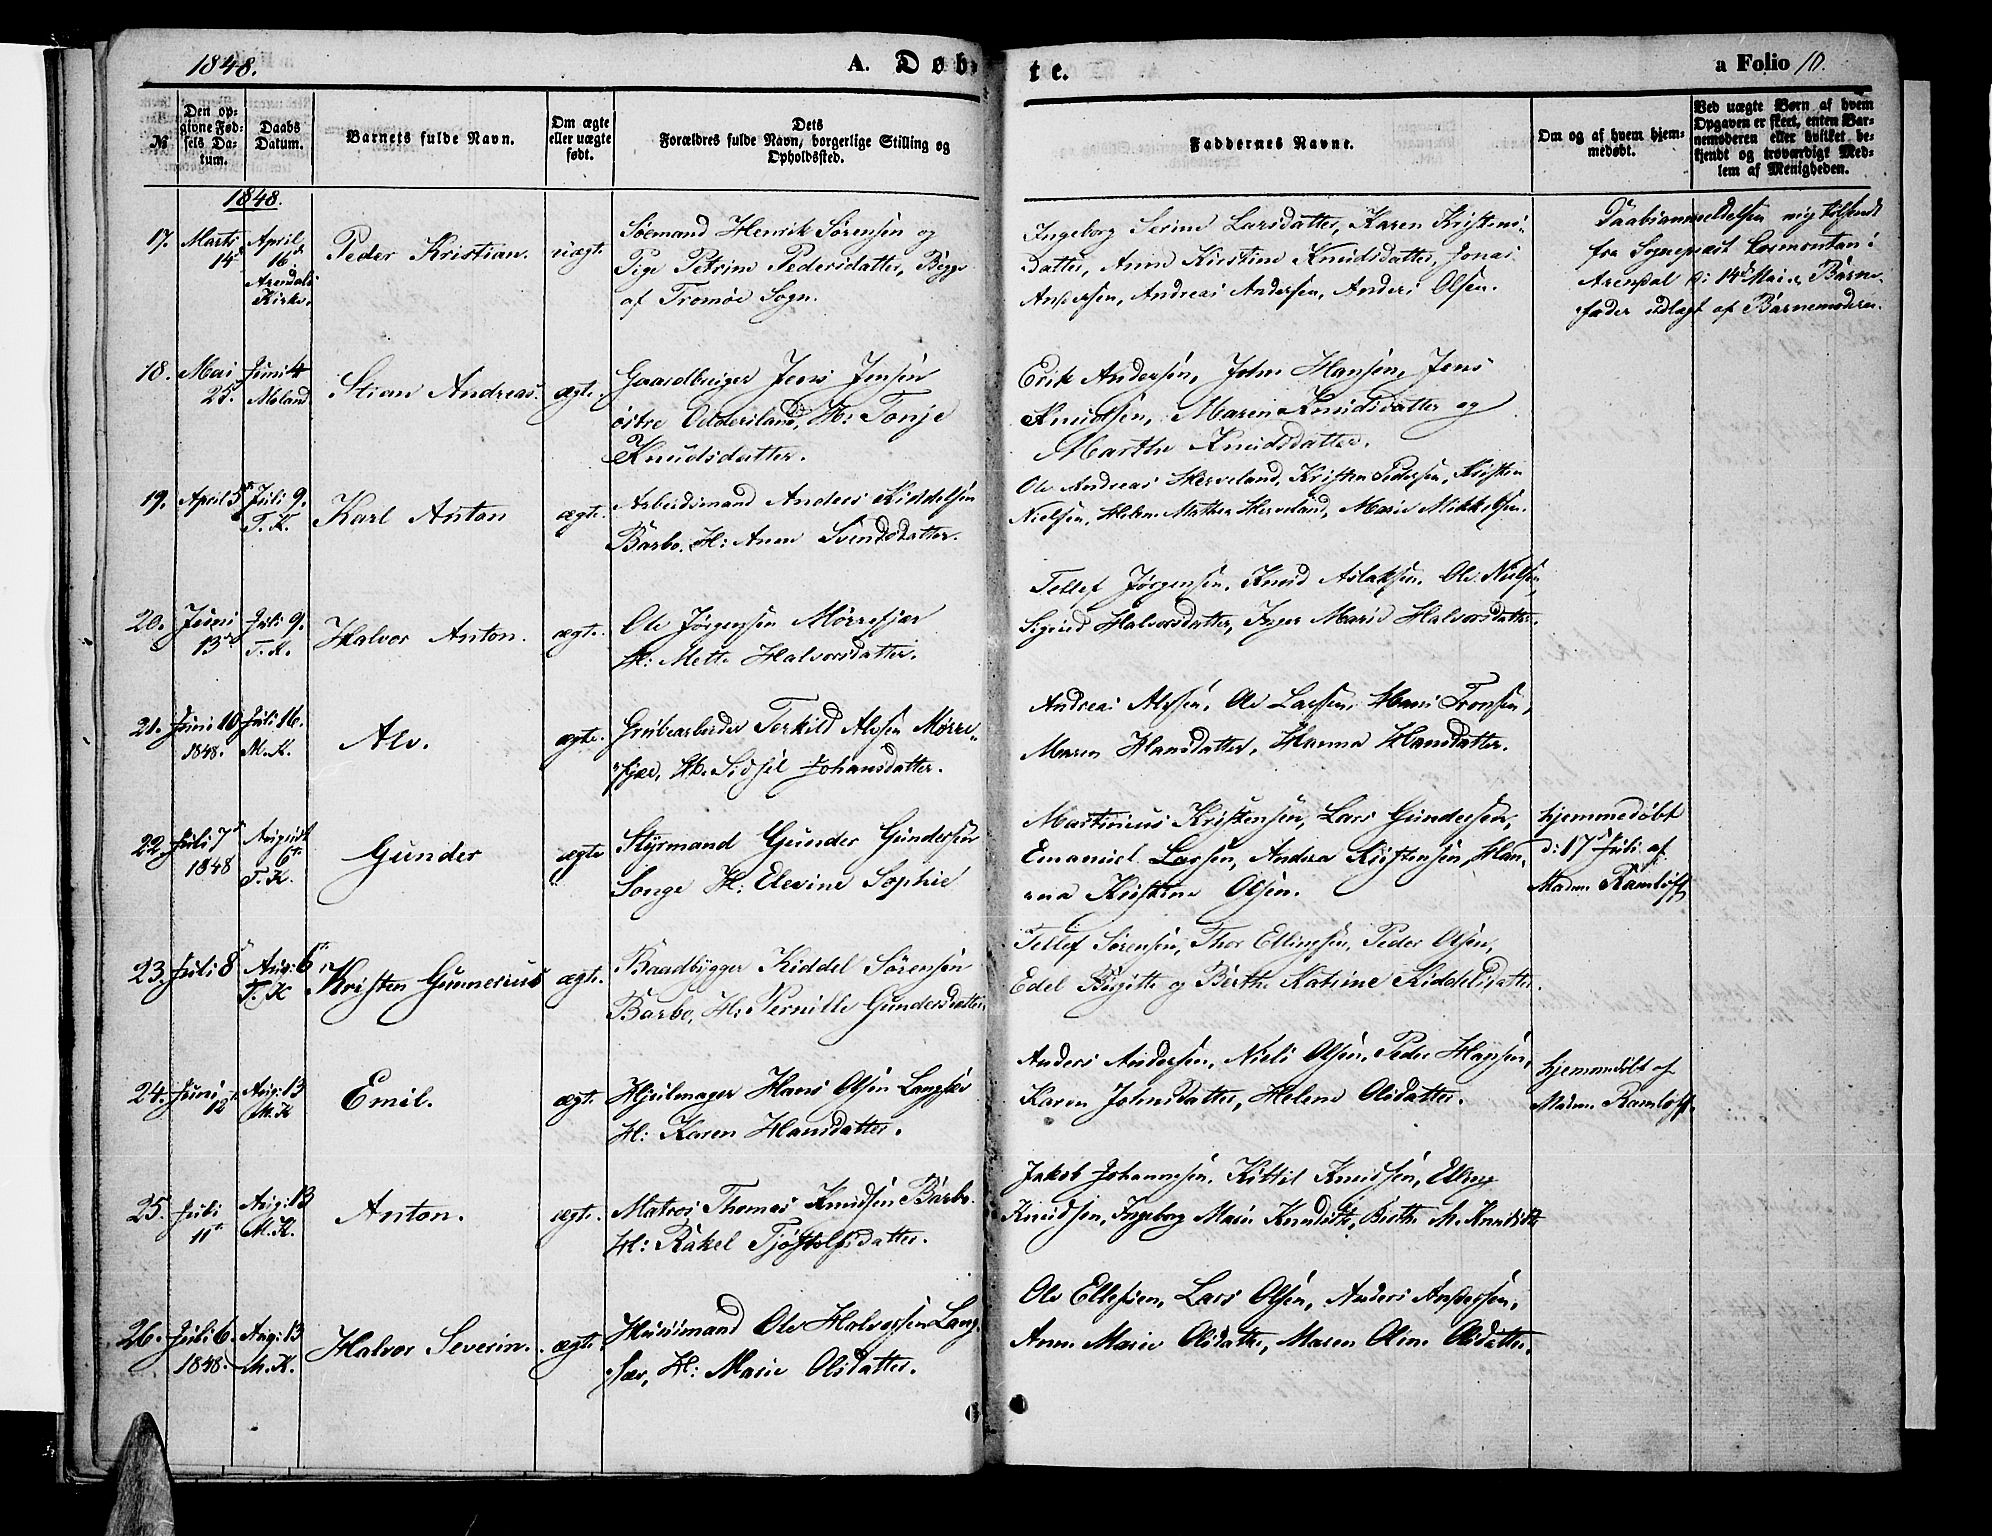 1848.
A. Døb-
te.
a Folio 10.
№
Den op-
givne Fød-
sels Da-
tum.
Daabs
Datum.
Barnets fulde Navn.
Om ægte
eller uægte
født.
Dets
Forældres fulde Navn, borgerlige Stilling og
Opholdssted.
Faddernes Navne.
Om og af hvem hjem-
medøbt.
Ved uægte Børn af hvem
Opgaven er skeet, enten Bar-
nemoderen eller hvilket be-
kjendt og troværdigt Med-
lem af Menigheden.
1848.
17. Marts
14
April
16
Arendals
Kirke.
Peder Kristian.
uægt.
Søemand Henrik Sørensen og
Pige Petrine Pedersdatter, Begge
af Tromøe Sogn.
Ingeborg Serine Larsdatter, Karen Kristens-
datter, Anne Kirstine Knudsdatter, Jonas
Andersen, Andreas Andersen, Anders Olsen.
Daabsanmeldelsen mig tilsendt
fra Sognepræst i
Arendal di 14d Mai, Barne-
fader udlagt af Barnemoderen.
18. Mai
25.
Juni 4
Moland
Stian Andreas.
ægte.
Gaardbruger Jens Jensen
østre H: Tonje
Knudsdatter.
Erik Andersen, John Hansen, Jens
Knudsen, Maren Knudsdatter og
Marthe Knudsdatter.
19. April 5
Juli 9.
T. K.
Karl Anton
ægte.
Arbeidsmand Anders Kiddelsen
Barbo, H: Anne Svendsdatter.
Ole Andreas Herveland, Kristen Pedersen, Kristen
Nielsen, Helene Mathea Herveland, Marie Mikkelsen.
20. Juni
13
Juli 9.
T. K.
Halvor Anton.
ægte.
Ole Jørgensen Mørrefjær
H: Mette Halvorsdatter.
Tellef Jørgensen, Knud Aslaksen, Ole Nielsen,
Sigrid Halvorsdatter, Inger Marie Halvorsdatter.
21. Juni 10
1848.
Juli 16.
M. K.
Alv.
ægte.
Grubearbeider Terkild Alvsen Mørre-
fjær, H: Sidsel Johansdatter.
Andreas Alvsen, Ole Larsen, Hans Tronsen,
Maren Hansdatter, Hanna Hansdatter.
22. Juli 7
1848
August
6
T. K.
Gunder
ægte
Styrmand Gunder Gundersen
Songe H: Elevine Sophie
Martinius Kristensen, Lars Gundersen,
Emanuel Larsen, Andrea Kristensen, Han-
na Kristine Olsen.
hjemmedøbt
d: 17 Juli af
Madm. Ramløff
23. Juli 8
Aug: 6
T. K
Kristen Gunnerius
ægte.
Baadbygger Kiddel Sørensen
Barbo, H: Pernille Gundersdatter.
Tellef Sørensen, Thor Ellingsen, Peder Olsen,
Edel Birgitte og Berthe Katrine Kiddelsdatter.
24. Juni
12
Aug: 13
M. K
Emil.
ægt.
Hjulmager Hans Olsen Langsæ
H: Karen Hansdatter.
Anders Andersen, Niels Olsen, Peder Hansen,
Karen Johnsdatter, Helene Olsdatter.
hjemmedøbt af
Madm. Ramløff.
25. Juli
11
Aug: 13
M. K.
Anton.
ægte.
Matros Thomas Knudsen Barbo
H: Rakel Tjøstolfsdatter.
Jakob Johannesen, Kittil Knudsen, Ellef
Knudsen, Ingeborg Marie Knudsdt, Berthe M. Knudsdt
26. Juli 6.
1848.
Aug: 13
M. K.
Halvor Severin.
ægte
Huusmand Ole Halvorsen Lang-
sæe, H: Marie Olsdatter.
Ole Ellefsen, Lars Olsen, Anders Andersen,
Anne Marie Olsdatter, Maren Oline Olsdatter.